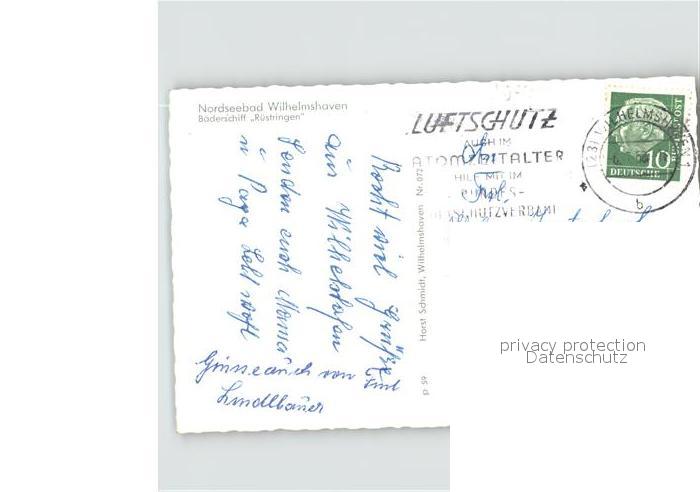 Nordseebad Wilhelmshaven
Bäderschiff „Rüstringen"
Recht viel Grüße
aus Wilhelmshafen
senden euch Mama
u Papa Lebt wohl
von
Lindlbauer
Horst Schmidt, Wilhelmshaven Nr. 072
p 59
LUFTSCHUTZ
AUCH IM
ATOMZEITALTER
HILF MIT IM
BUNDES-
LUFTSCHUTZVERBAND
(23) WILHELMSHAVEN 1
b
10
DEUTSCHE
BUNDESPOST
privacy protection
Datenschutz